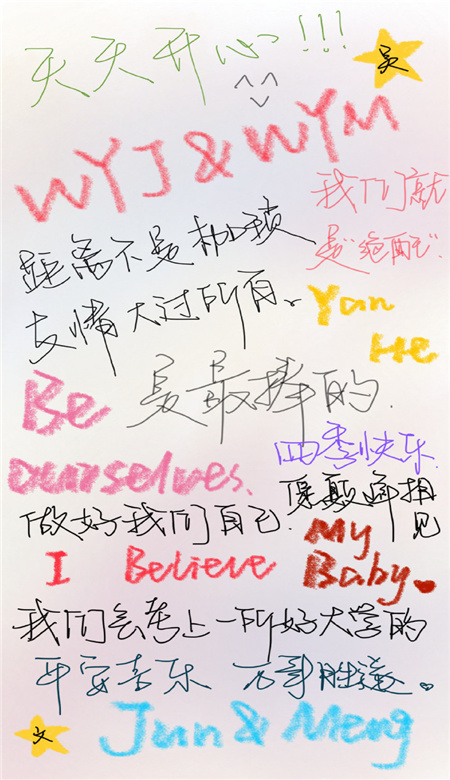 天天开心!!!
吴
^^
WYJ&WYM
我们就
是"绝配".
距离不是枷锁
友情大过所有。
Yan
He
Be
最棒的.
ourselves.
四季快乐
相见
做好我们自己.
My
Baby.
I Believe
我们会考上一所好大学的
平安喜乐 万事胜意。
文
Jun & Meng